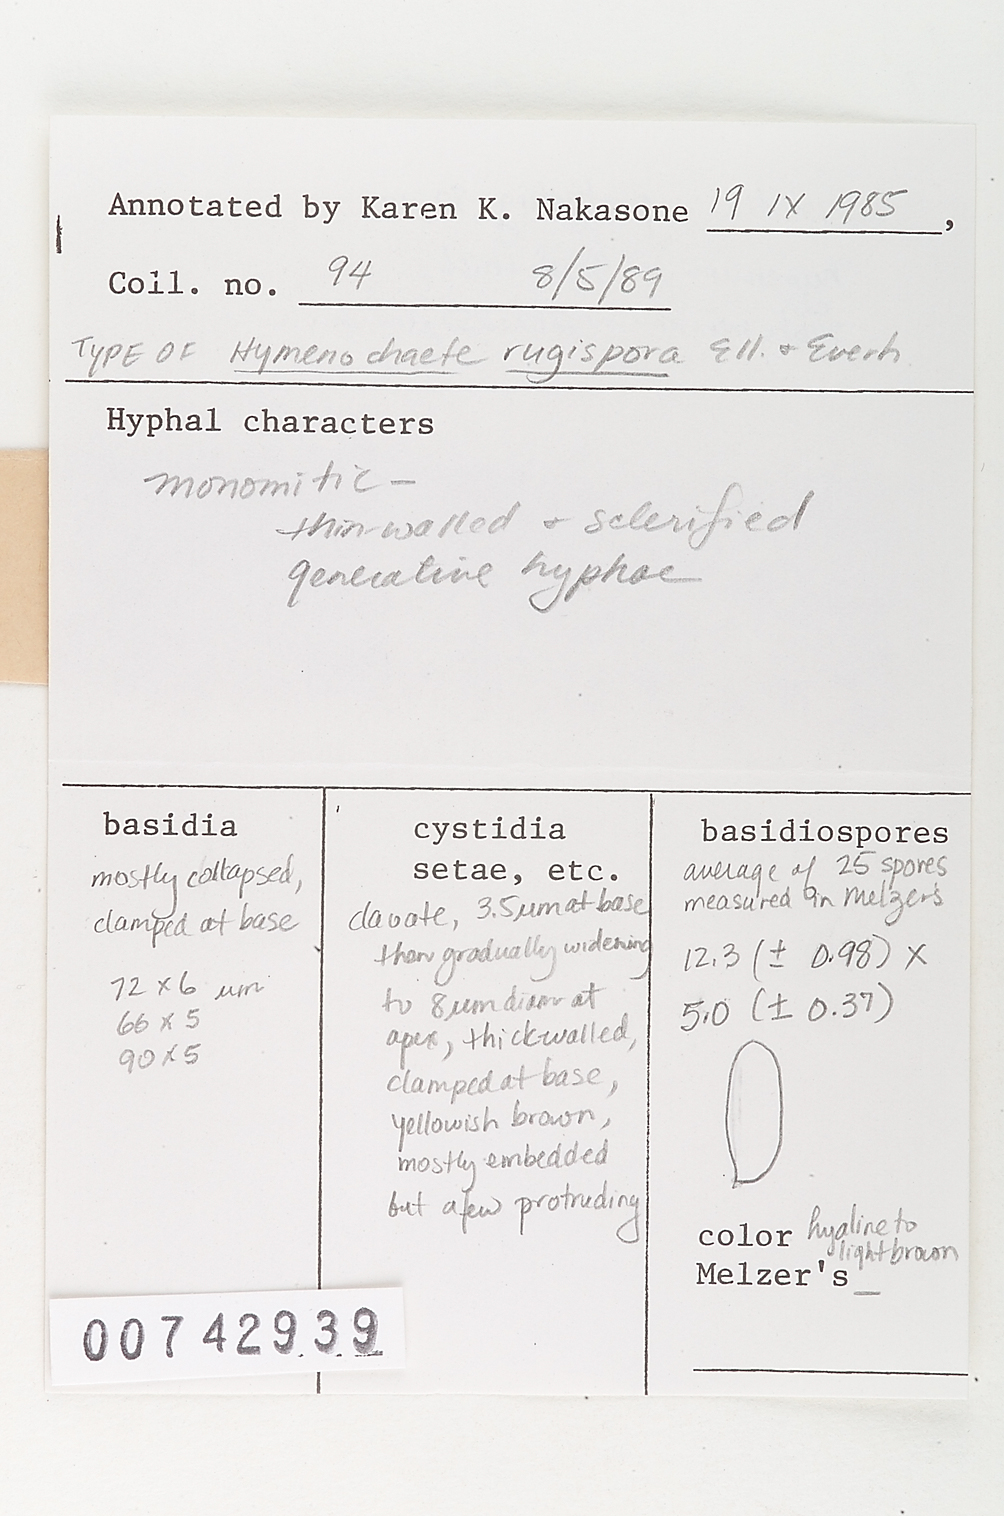 Annotated by Karen K. Nakasone 19 IX 1985,
Coll. no. 94 8/5/89
TYPE OF Hymenochaete rugispora Ell. + Everh.
Hyphal characters
monomitic –
thin-walled + sclerified
generative hyphae
basidia
mostly collapsed,
clamped at base
72 x 6 um
66 x 5
90 x 5
cystidia
setae, etc.
clavate, 3.5 um at base
then gradually widening
to 8 um diam at
apex, thick-walled,
clamped at base,
yellowish brown,
mostly embedded
but a few protruding
basidiospores
average of 25 spores
measured in Melzer's
12.3 (± 0.98) x
5.0 (± 0.37)
color hyaline to
light brown
Melzer's –
00742939